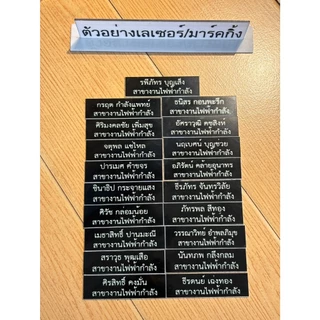 ตัวอย่างเลเซอร์/มาร์คกิ้ง
รพีภัทร บุญเส็ง
สาขางานไฟฟ้ากำลัง
กรฤต กำลังแพทย์
สาขางานไฟฟ้ากำลัง
ธนิสร กอนพะริก
สาขางานไฟฟ้ากำลัง
ศิริมงคลชัย เพิ่มสุข
สาขางานไฟฟ้ากำลัง
อัศราวุฒิ คชสิงห์
สาขางานไฟฟ้ากำลัง
จตุพล แซ่โหล
สาขางานไฟฟ้ากำลัง
นฤเบศน์ บุญช่วย
สาขางานไฟฟ้ากำลัง
ปารเมศ คำขจร
สาขางานไฟฟ้ากำลัง
อภิรัตน์ คล้ายอุนาทร
สาขางานไฟฟ้ากำลัง
ชินาธิป กระจายแสง
สาขางานไฟฟ้ากำลัง
ธีรภัทร จันทรวิลัย
สาขางานไฟฟ้ากำลัง
ศิวัช กล่อมน้อย
สาขางานไฟฟ้ากำลัง
ภัทรพล สีทอง
สาขางานไฟฟ้ากำลัง
เมธาสิทธิ์ ปานมะณี
สาขางานไฟฟ้ากำลัง
วรรณาวิทย์ อำพลภิมุข
สาขางานไฟฟ้ากำลัง
สราวุธ พุฒเสือ
สาขางานไฟฟ้ากำลัง
นันทภพ กลึงกลม
สาขางานไฟฟ้ากำลัง
ศิรสิทธิ์ คงมั่น
สาขางานไฟฟ้ากำลัง
ธีรดนย์ เฉ่งทอง
สาขางานไฟฟ้ากำลัง